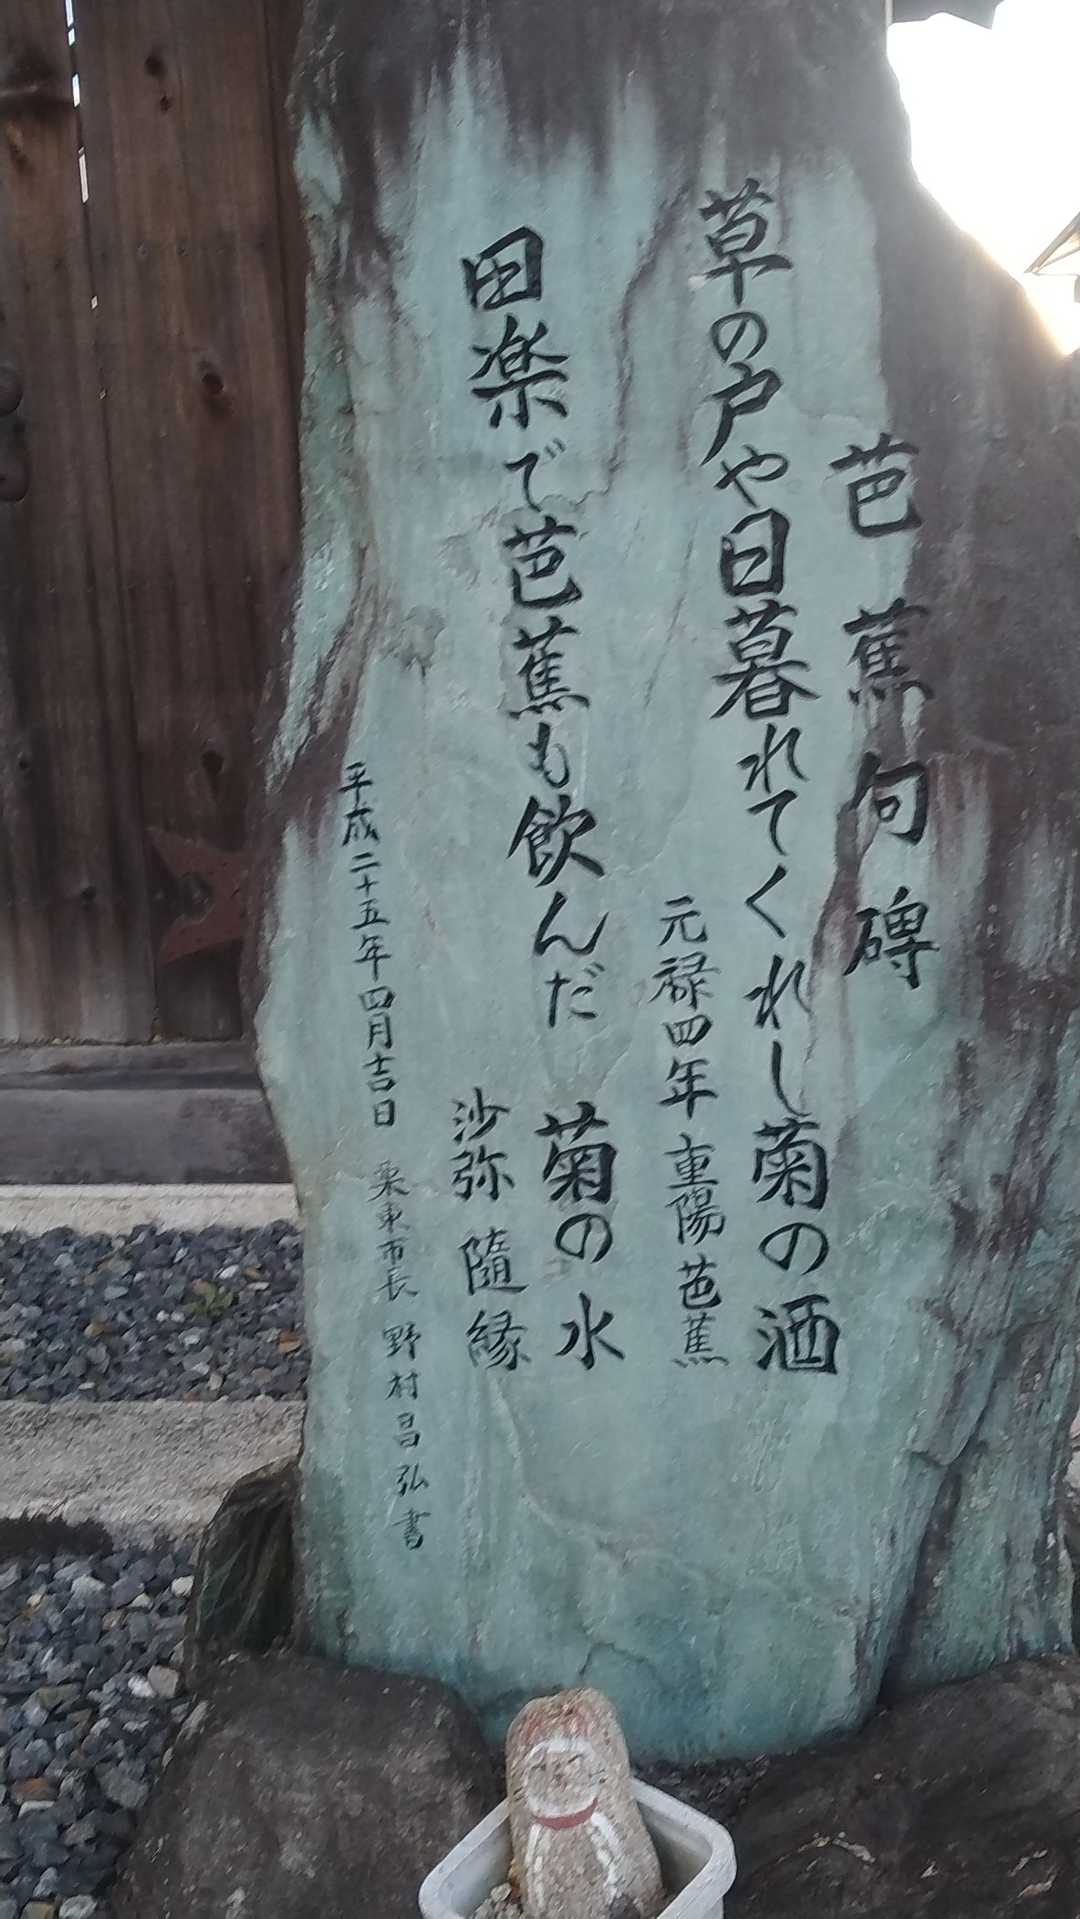 芭蕉句碑
草の戸や日暮れてくれし菊の酒
元禄四年 重陽 芭蕉
田楽で芭蕉も飲んだ 菊の水
沙弥 随縁
平成二十五年四月吉日 栗東市長 野村昌弘書